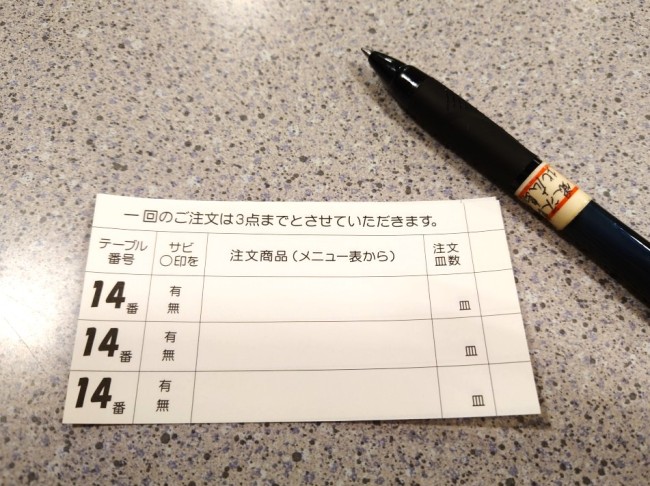 一回のご注文は3点までとさせていただきます。
テーブル番号 サビ○印を 注文商品(メニュー表から) 注文皿数
14番 有 無 皿
14番 有 無 皿
14番 有 無 皿